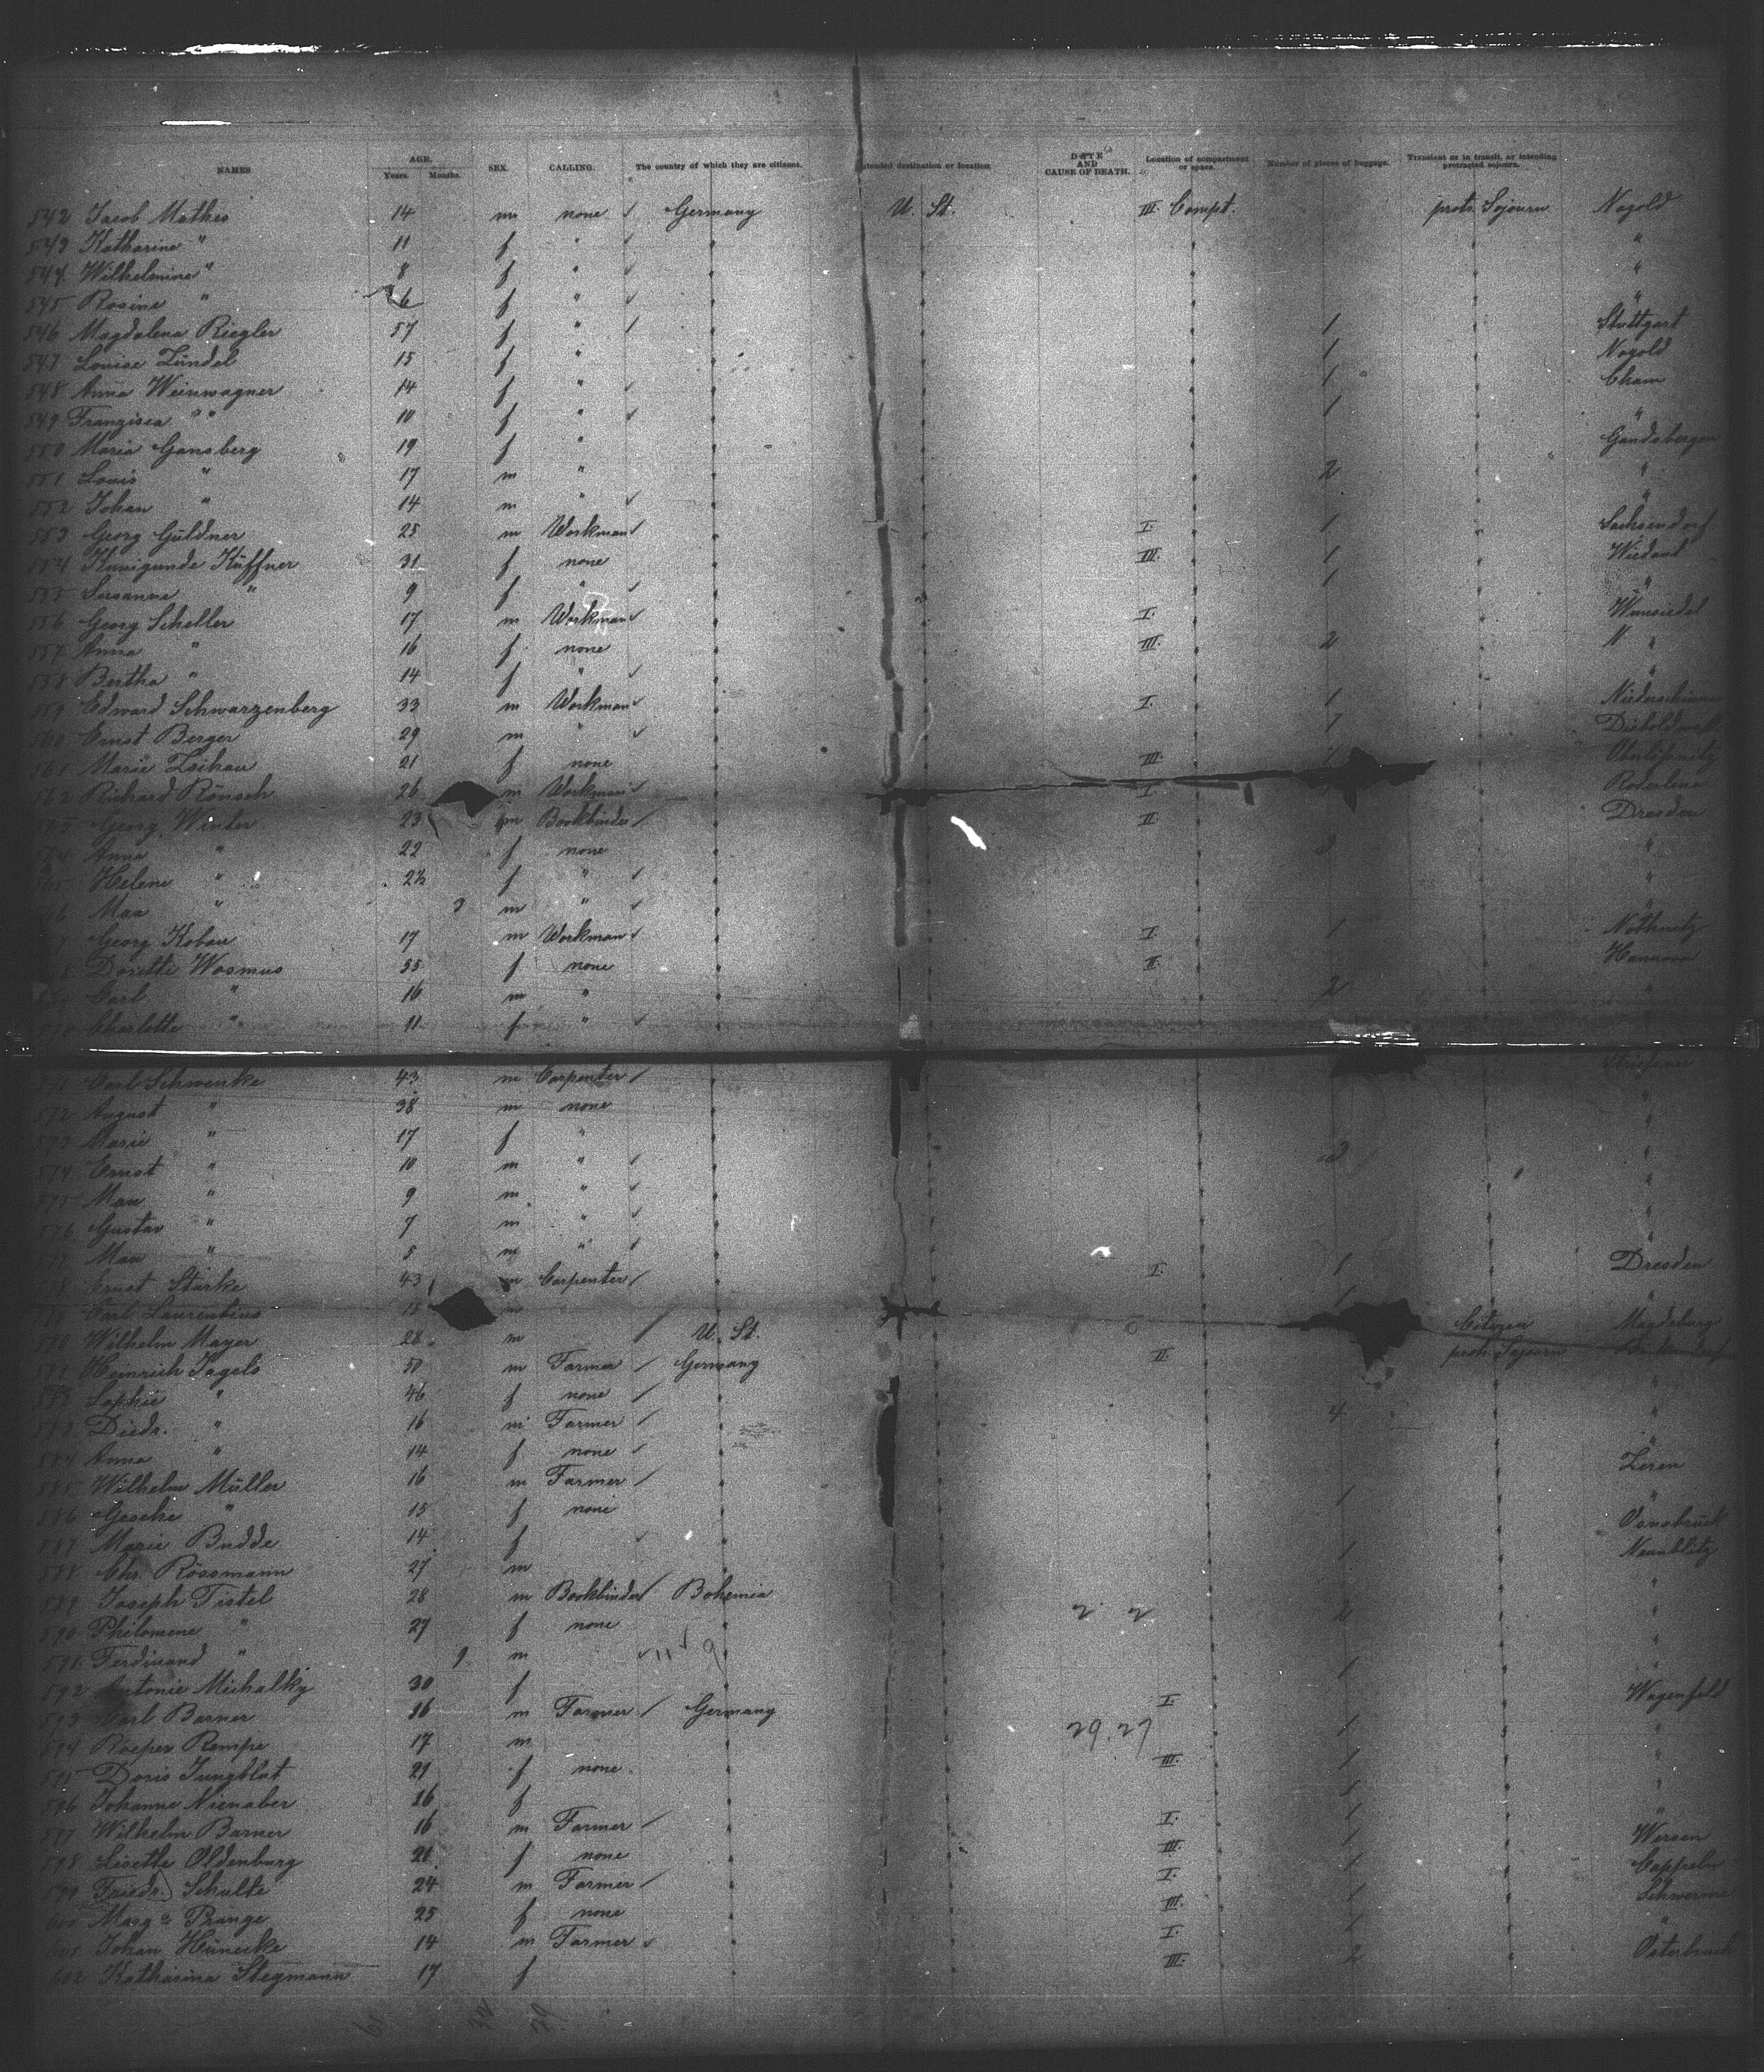 NAMES AGE. Years. Months. SEX. CALLING. The country of which they are citizens. Intended destination or location. DATE AND CAUSE OF DEATH. Location of compartment or space. Number of pieces of baggage. Transient or in transit, or intending protracted sojourn.
542 Jacob Mathes 14 m none ✓ Germany U. St. III. Compt. protr. Sojourn Nagold
543 Katharine " 11 f " ✓ "
544 Wilhelmine " 8 f " ✓ "
545 Rosine " 6 f " ✓ "
546 Magdalena Riegler 57 f " / 1 Stuttgart
547 Louise Zündel 15 f " 1 Nagold
548 Anna Weinwagner 14 f " ✓ 1 Cham
549 Franzisca " " 10 f " ✓ 1 "
550 Maria Gansberg 19 f " Gandsbergen
551 Louis " 17 m " 2 "
552 Johan " 14 m " ✓ "
553 Georg Güldner 25 m Workman ✓ I. 1 Sachsendorf
554 Kunigunde Küffner 31 f none III. 1 Wiedand
555 Susanne " 9 f " ✓ 1 "
556 Georg Scheller 17 m Workman ✓ I. Wunsiedel
557 Anna " 16 f none III. 2 "
558 Bertha " 14 f " ✓ "
559 Edward Schwarzenberg 33 m Workman ✓ I. 1
560 Ernst Berger 29 m " ✓ 1
561 Marie Zschau 21 f none III.
562 Richard Rönsch 26 m Workman ✓ I.
563 Georg Winter 23 m Bookbinder / II. Dresden
564 Anna " 22 f none "
565 Helene " 2½ f " ✓ "
566 Max " 3 m " ✓ "
567 Georg Kobau 17 m Workman ✓ I. 1 Nothnitz
568 Dorette Wasmus 35 f none II. Hannover
569 Carl " 16 m " 2 "
570 Charlotte " 11 f " ✓
571 Carl Schwenke 43 m Carpenter /
572 August " 38 m none "
573 Marie " 17 f " "
574 Ernst " 10 m " ✓ 3 "
575 Max " 9 m " ✓ "
576 Gustav " 7 m " ✓ "
577 Max " 5 m " ✓ "
578 Ernst Starke 43 m Carpenter / I. 1 Dresden
579 Carl Laurentius 15 m 1 "
580 Wilhelm Mayer 28 m / U. St. Citizen Magdeburg
581 Heinrich Jagels 50 m Farmer / Germany II. protr. Sojourn
582 Sophie " 46 f none / "
583 Diedr. " 16 m Farmer / 4 "
584 Anna " 14 f none ✓ "
585 Wilhelm Müller 16 m Farmer / Zeven
586 Gesche " 15 f none 1 "
587 Marie Budde 14 f ✓ Osnabrück
588 Chr. Rössmann 27 m 1
589 Joseph Tistel 28 m Bookbinder / Bohemia "
590 Philomene " 27 f none 2 "
591 Ferdinand " 9 m ✓ "
592 Antonie Michalky 30 f 1 "
593 Carl Barner 16 m Farmer / Germany I. Wagenfeld
594 Roeper Rempe 17 m 29.27 1 "
595 Doris Jungblut 21 f none III. 1 "
596 Johanne Nienaber 16 f 1 "
597 Wilhelm Barner 16 m Farmer / I. 1 "
598 Lisette Oldenburg 21 f none III. 1 Wersen
599 Friedr. Schulte 24 m Farmer / I. 1 Cappeln
600 Marg. Prange 25 f none III. 1 Schwerme
601 Johan Hünecke 14 m Farmer ✓ I. 1 "
602 Katharina Stegmann 17 f III. 2